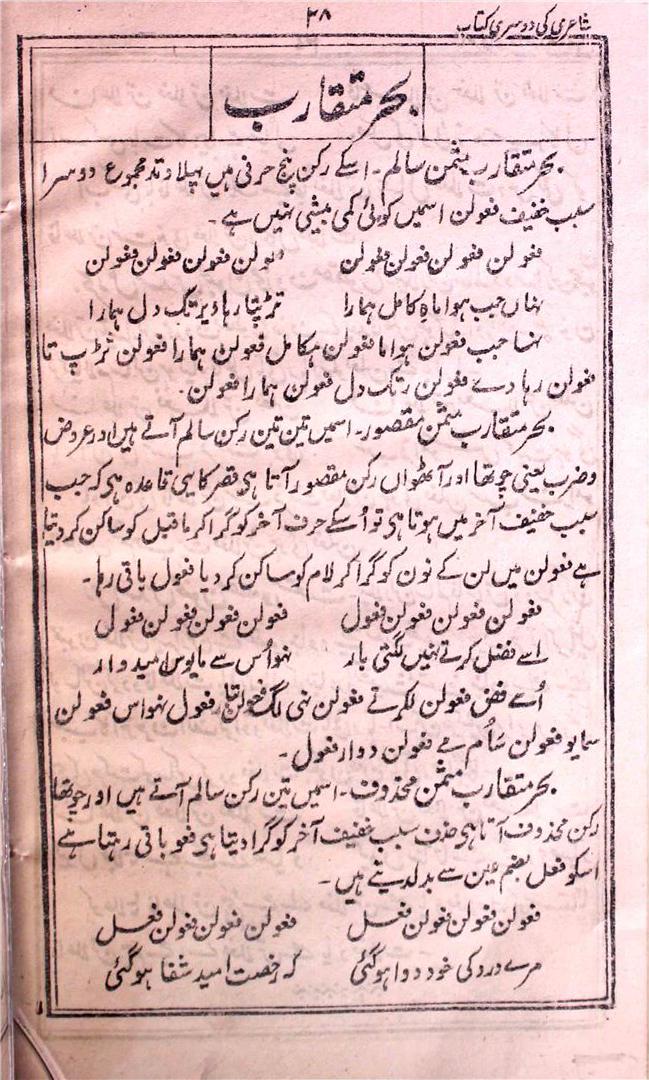 شاعری کی دوسری کتاب
۳۸
بحر متقارب
بحر متقارب مثمن سالم۔ اسکے رکن پنج حرفی ہیں پہلا وتد مجموع دوسرا
سبب خفیف فعولن اسمیں کوئی کمی بیشی نہیں ہے۔
فعولن فعولن فعولن فعولن فعولن فعولن فعولن فعولن
نہاں جب ہوا ماہِ کامل ہمارا تڑپتا رہا دیر تک دل ہمارا
نہا جب فعولن ہوا ما فعولن ہکامل فعولن ہمارا فعولن تڑپ تا
فعولن رہا دے فعولن رتک دل فعولن ہمارا فعولن۔
بحر متقارب مثمن مقصور۔ اسمیں تین تین رکن سالم آتے ہیں اور عروض
وضرب یعنی چوتھا اور آٹھواں رکن مقصور آتا ہی قصر کا یہی قاعدہ ہی کہ جب
سبب خفیف آخر میں ہوتا ہی تو اُسکے حرف آخر کو گرا کر ماقبل کو ساکن کردیتا
ہے فعولن میں لن کے نون کو گرا کر لام کو ساکن کر دیا فعول باقی رہا۔
فعولن فعولن فعولن فعول فعولن فعولن فعولن فعول
اسے فضل کرتے نہیں لگتی بار نہو اُس سے مایوس امیدوار
اُسے فض فعولن لکرتے فعولن نہی لگ فعولن فعول نہو اس فعولن
سمایو فعولن فعولن دوار فعول۔
بحر متقارب مثمن محذوف۔ اسمیں تین رکن سالم آتے ہیں اور چوتھا
رکن محذوف آتا ہی حذف سبب خفیف آخر کو گرا دیتا ہی فعو باقی رہتا ہے
اسکو فعل بضم عین سے بدلدیتے ہیں۔
فعولن فعولن فعولن فعل فعولن فعولن فعولن فعل
مرے درد کی خود دوا ہوگئی کہ رخصت امید شفا ہوگئی